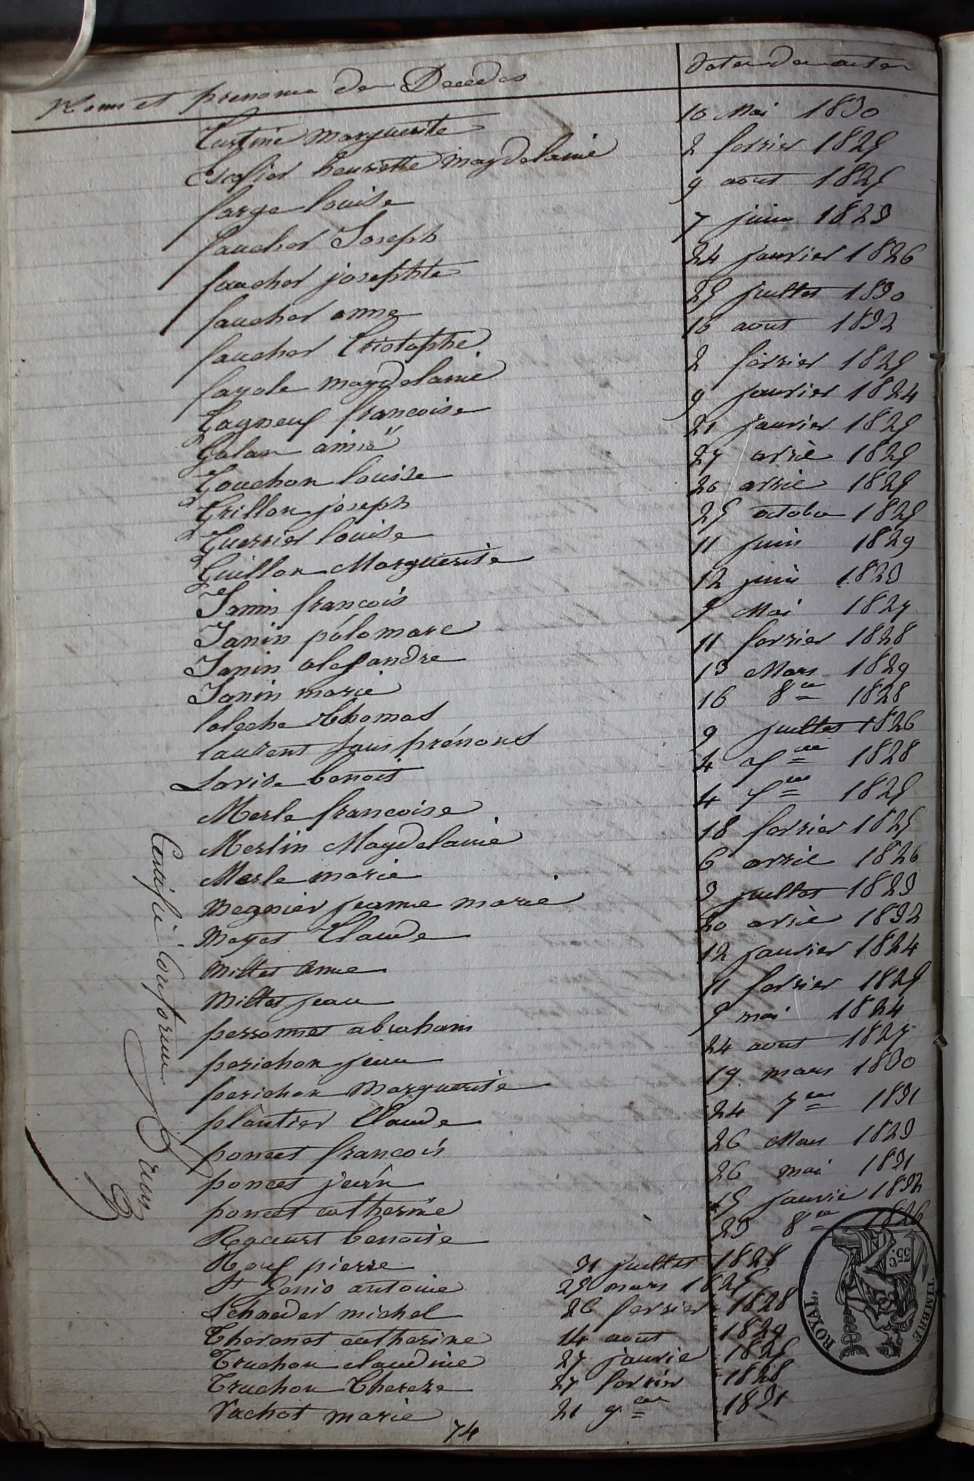 Noms et prenoms de Decedes Dates des actes
Curtine Marguerite 10 Mai 1830
heurette magdelaine 2 fevrier 1825
farge louise 9 aout 1825
faucher Joseph 7 juin 1823
faucher josephte 24 janvier 1826
faucher anne 25 juillet 1830
faucher Cristophe 10 aout 1832
fayole magdelaine 2 fevrier 1825
Gagneux francoise 9 janvier 1824
Galan aimé 21 janvier 1825
Gouchon louise 27 avril 1825
Grillon joseph 20 avril 1825
Guerrier louise 25 octobre 1825
Guillon Marguerite 11 juin 1829
Janin francois 12 juin 1823
Janin pólomare 5 Mai 1827
Janin alexandre 11 fevrier 1828
Janin marie 13 Mars 1829
laleche thomas 16 8re 1828
laurent sans prénoms 9 juillet 1826
Lavise benoit 4 7re 1828
Merle francoise 4 7re 1825
Merlin Magdelaine 18 fevrier 1825
Merle marie 6 avril 1826
Megnier jeanne marie 3 juillet 1823
Meyet Claude 20 avril 1832
Millet anne 12 janvier 1824
Millet jean 11 fevrier 1825
perronnet abraham 5 mai 1824
perichon jean 24 aout 1827
perichon Marguerite 19 mars 1830
plantier Claude 24 7re 1831
poncet francois 26 Mars 1823
poncet jean 26 mai 1831
poncet catherine 15 janvier 1832
benoite 23 8re 1826
Roux pierre 31 juillet 1828
St antoine 25 mars 1825
Schneder michel 26 fevrier 1828
Theronet catherine 14 aout 1829
Truchon claudine 27 janvier 1825
Truchon thereze 27 fevrier 1828
Vachot marie 21 9re 1831
74
Certifié Conforme
Janin
TIMBRE ROYAL
35 C